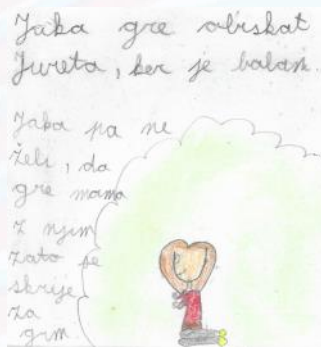 Jaka gre obiskat
Jureta, ker je bolan.
Jaka pa ne
želi, da
gre mama
z njim
zato se
skrije
za
grm.